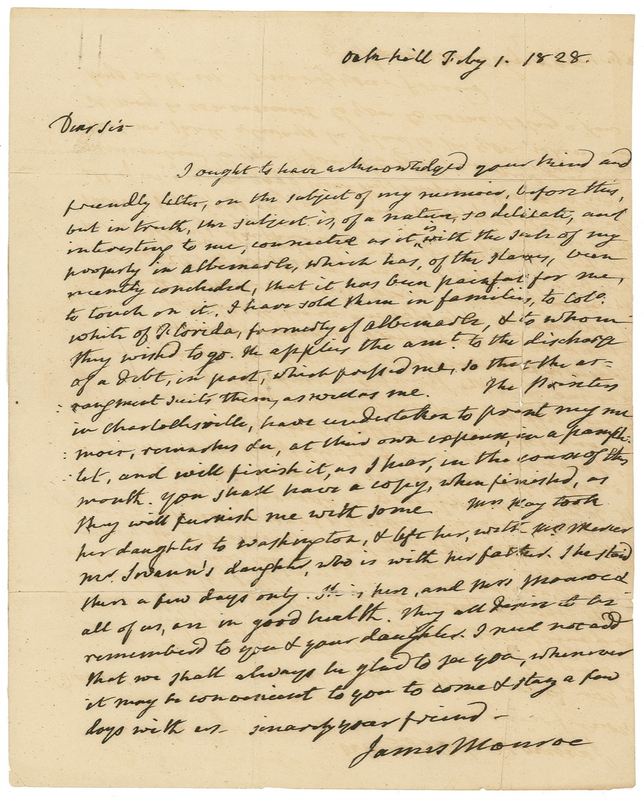 Oak hill Feby 1. 1828.
Dear Sir
I ought to have acknowledged your kind and
friendly letter, on the subject of my memoir, before this,
but in truth, the subject is, of a nature, so delicate, and
interesting to me, connected as it is with the sale of my
property in albemarle, which has, of the slaves, been
recently concluded, that it has been painful for me,
to touch on it. I have sold them in families, to Colo.
white of Florida, formerly of albemarle, & to whom
they wished to go. He applies the amt. to the discharge
of a debt, in part, which pressed me, so that the ar-
rangment suits them, as well as me. The Printers
in Charlottesville, have undertaken to print my me
moir, remarks &c, at their own expense, in a pamph-
let, and will finish it, as I hear, in the course of this
month. you shall have a copy, when finished, as
they will furnish me with some Mrs Hay took
her daughter to Washington, & left her, with Mrs Mercer
Mr. Swann's daughter, who is with her father. She staid
there a few days only. She is here, and Mrs Monroe &
all of us, are in good health. They all desire to be
rememberd to you & your daughter. I need not add
that we shall always be glad to see you, whenever
it may be convenient to you to come & stay a few
days with us - sincerely your friend -
James Monroe